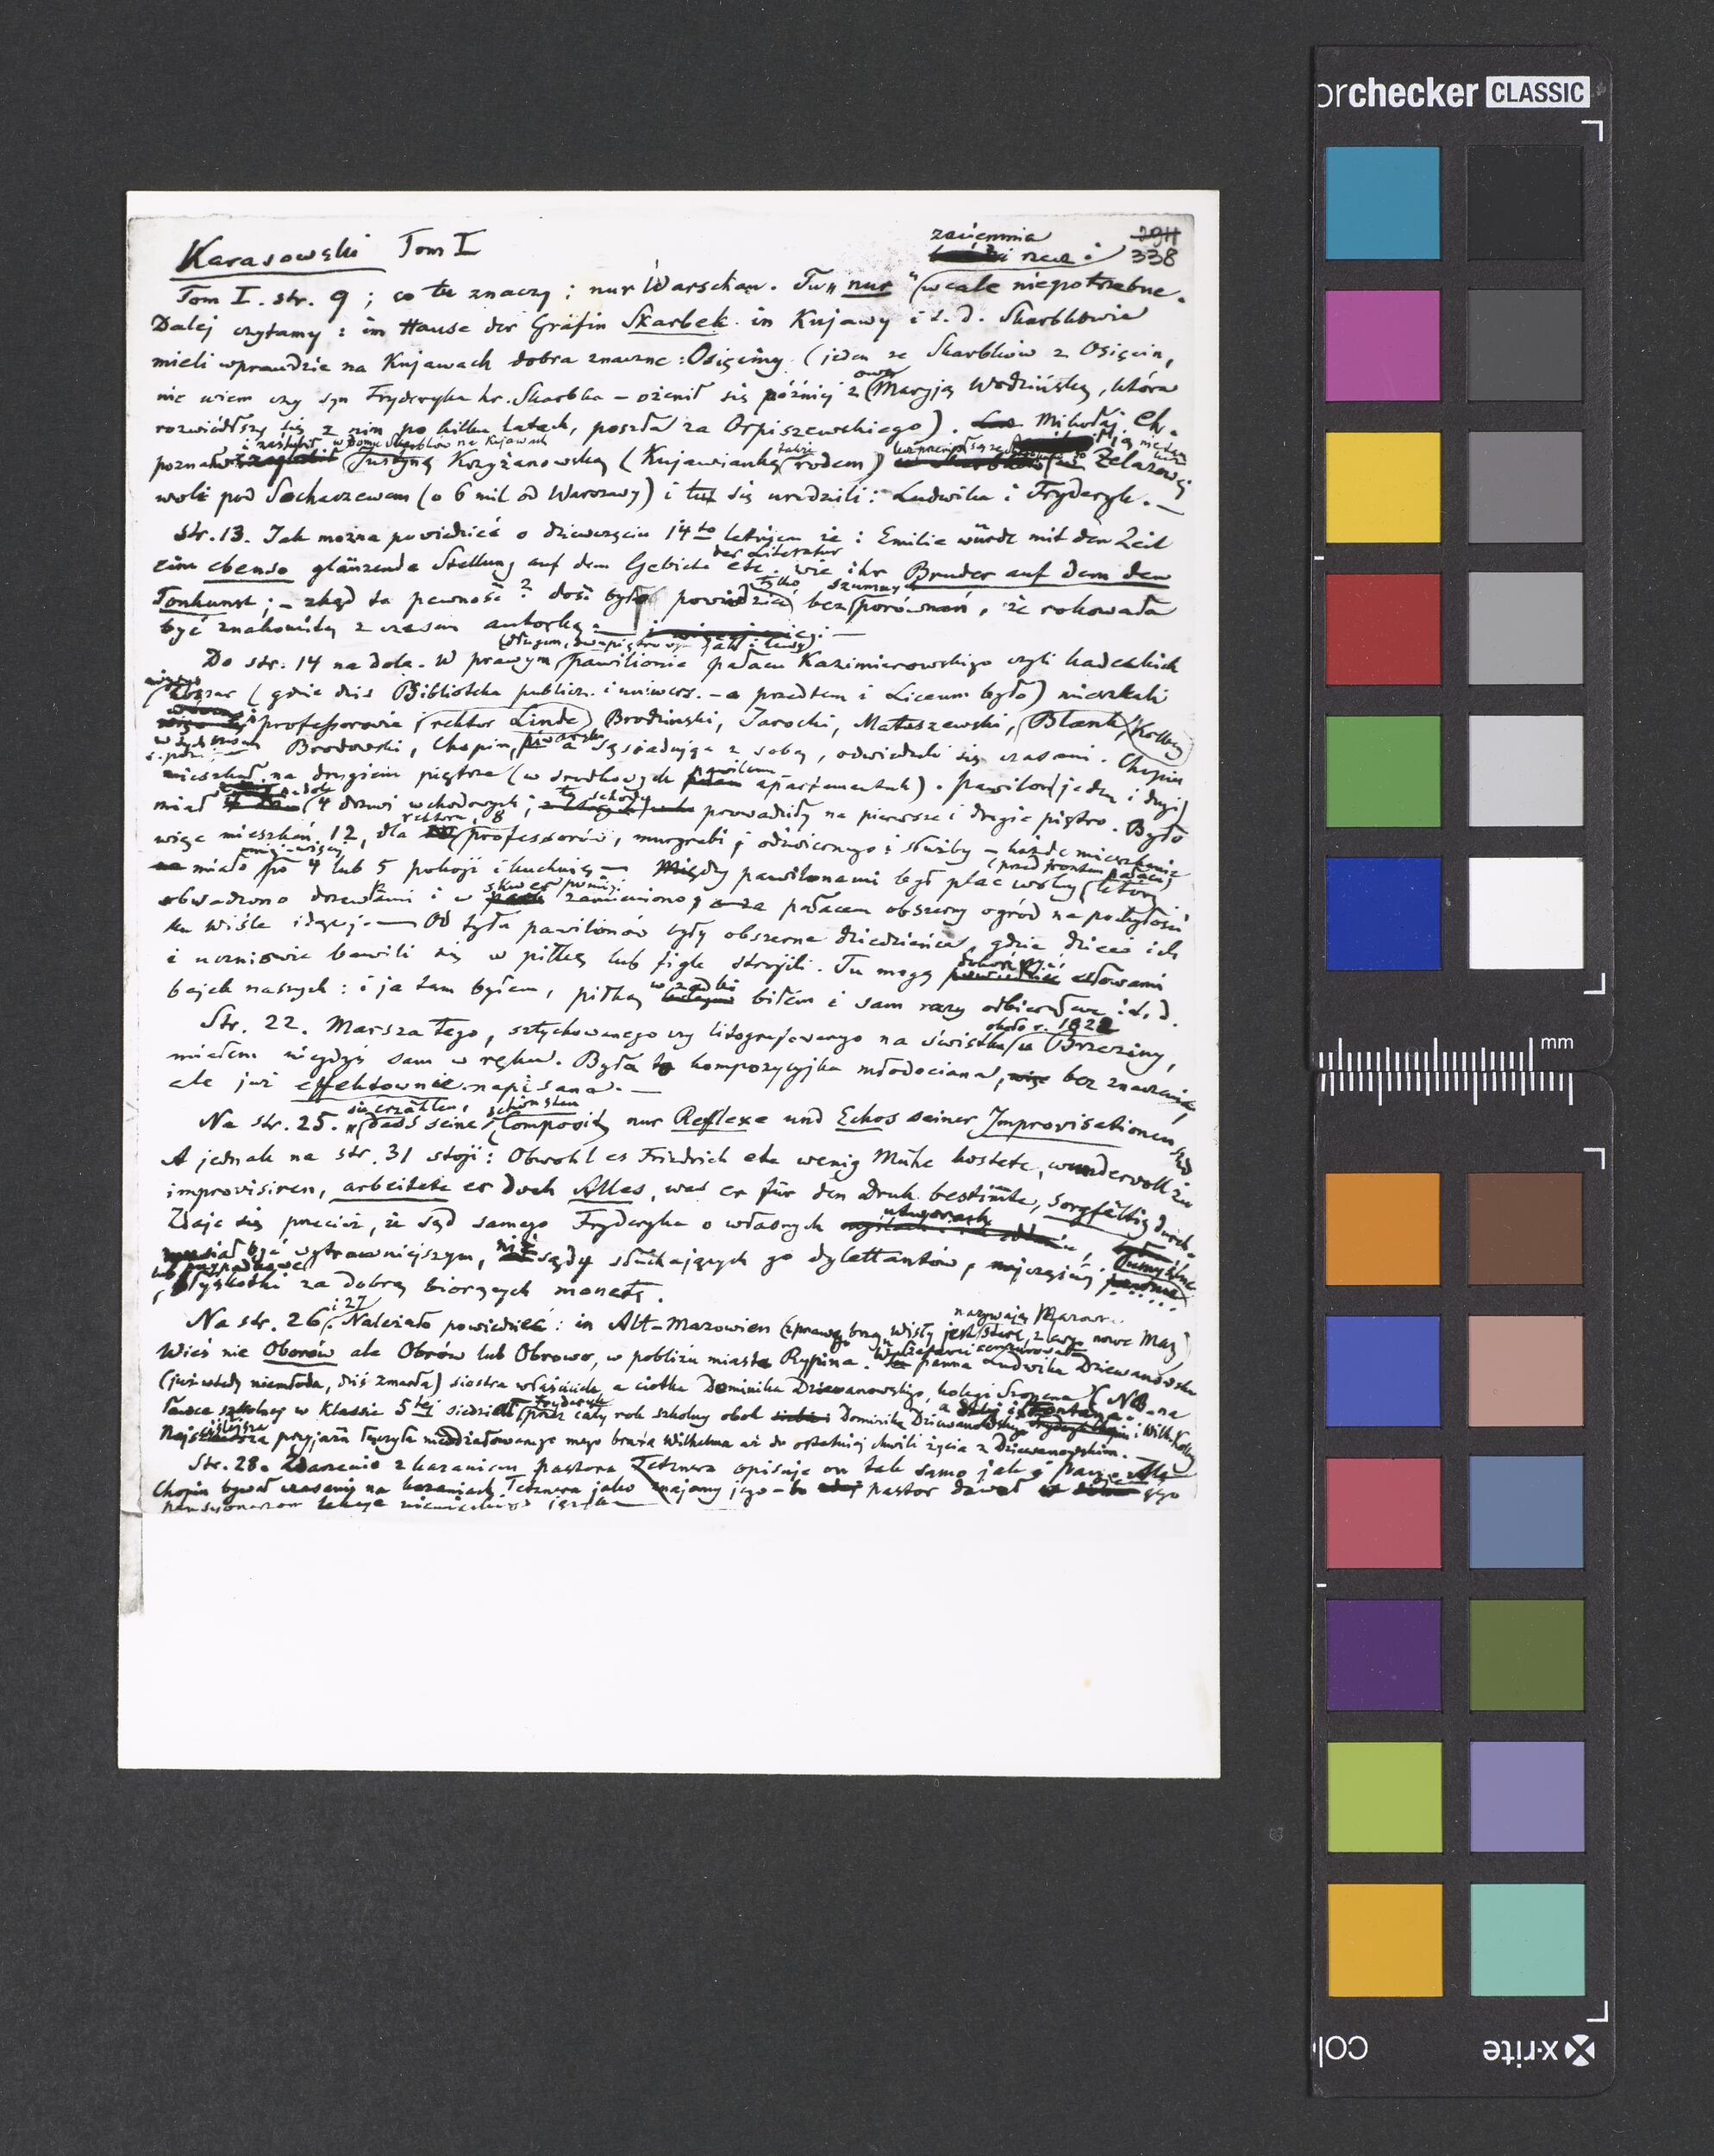 Karasowski Tom I
zaciemnia
rzecz i 338
Tom I. str. 9 ; co tu znaczy : nur Warschau. Tu „nur" wcale niepotrzebne.
Dalej czytamy : im Hause der Gräfin Skarbek in Kujawy i t. d. Skarbkowie
mieli wprawdzie na Kujawach dobra znaczne : Osięciny (jeden ze Skarbków z Osięcin,
nie wiem czy syn Fryderyka hr. Skarbka – ożenił się później z ową Maryją Wodzińską, która
rozwiódłszy się z nim po kilku latach, poszła za Orpiszewskiego). Mikołaj Ch.
i zaślubił w domu Skarbków na Kujawach
poznał Justynę Krzyżanowską (Kujawiankę także rodem) Żelazowej
woli pod Sochaczewem (o 6 mil od Warszawy) i tu się urodzili : Ludwika i Fryderyk. —
str. 13. Jak można powiedzieć o dziewczęciu 14to letniem że : Emilie würde mit der Zeit
der Literatur
eine ebenso glänzende Stellung auf dem Gebiete etc. wie ihr Bruder auf dem der
tylko szumnych
Tonkunst ; – zkąd ta pewność ? dość było powiedzieć bez porównań, że rokowała
być znakomitą z czasem autorką. —
Do str. 14 na dole. W prawym pawilonie pałacu Kazimirowskiego czyli kadeckich
koszar (gdzie dziś Biblioteka publicz. i uniwers. – a przedtem i Liceum było) mieszkali
professorowie (rektor Linde) Brodziński, Jarocki, Matuszewski, Blank, Kolberg
Brodowski, Chopin, a sąsiadując z sobą, odwiedzali się czasami. Chopin
mieszkał na drugiem piętrze (w środkowych pawilonu apartamentach). Pawilon (jeden i drugi)
miał (4 drzwi wchodowych ; schody prowadziły na pierwsze i drugie piętro. Było
więc mieszkań 12, dla rektora, 8 professorów, murgrabi, odźwiernego i służby – każde mieszkanie
miało po 4 lub 5 pokoji i kuchnię — Między pawilonami był plac wolny (przed frontem pałacu) który
obwadzono drzewkami i w skwer zamieniono, a za pałacem obszerny ogród na pochyłości
ku wiśle idącej. — Od tyłu pawilonów były obszerne dziedzińce, gdzie dzieci ich
i uczniowie bawili się w piłkę lub figle stroili. Tu mogę słowami
bajek naszych : i ja tam byłem, piłkę w zadki biłem i sam razy odbierałem i t. d.
Str. 22. Marsza tego, sztychowanego czy litografowanego na świstku około r. 1822 u Brzeziny,
miałem niegdyś sam w ręku. Była to kompozycyjka młodociana, bez znaczenia
ale już effektownie napisana. —
Na str. 25. „sie erzählen, dass seine schönsten Composit. nur Reflexe und Echos seiner Improvisationen sind
A jednak na str. 31 stoji : Obwohl es Friedrich etc wenig Mühe kostete, wundervoll zu
improvisiren, arbeitete er doch Alles, was er für den Druck bestimte, sorgfältig durch.
Zdaje się przecież, że sąd samego Fryderyka o własnych utworach
musiał być wytrawniejszym, niż sądy słuchających go dylettantów, najczęściej
błyskotki za dobrą biorących monetę.
Na str. 26 i 27 Należało powiedzieć : in Alt-Mazowien (z prawego brzegu Wisły jest stare, z lewego nowe Maz.)
Wieś nie Oborów ale Obrów lub Obrowo, w pobliżu miasta Rypina. panna Ludwika Dziewanowska
(już wtedy niemłoda, dziś zmarła) siostra właściciela, a ciotka Dominika Dziewanowskiego, kolegi Szopena (NB. na
ławce szkolnej w klassie 5tej siedział Fryderyk przez cały rok szkolny obok Dominika Dziewanowskiego i Wilh. Kolb.
przyjaźń łączyła nieodżałowanego mego brata Wilhelma aż do ostatniej chwili życia z Dziewanowskim.
Str. 28. Zdarzenie z kazaniem pastora Tetznera opisuje on tak samo jak i Pan.
Chopin bywał czasami na kazaniach Tetznera jako znajomy jego – bo pastor dawał jego
pensyonarzom lekcye niemieckiego języka —
orchecker CLASSIC
mm
x-rite
colo